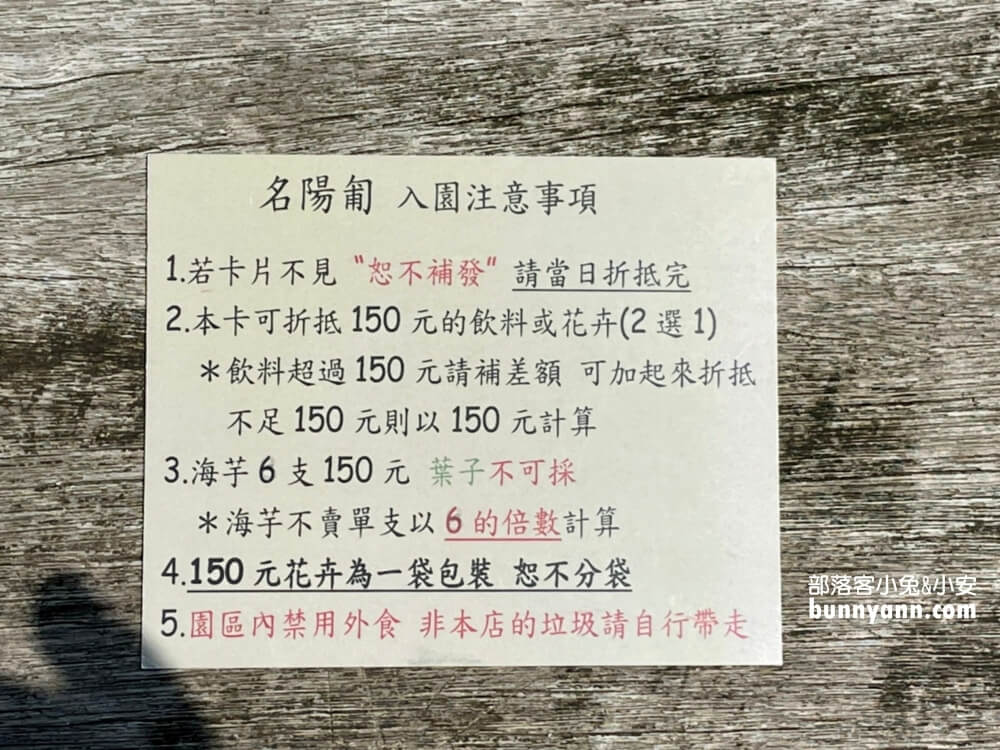 名陽匍 入園注意事項
1.若卡片不見 "恕不補發" 請當日折抵完
2.本卡可折抵 150 元的飲料或花卉(2 選 1)
＊飲料超過 150 元請補差額 可加起來折抵
不足 150 元則以 150 元計算
3.海芋 6 支 150 元 葉子不可採
＊海芋不賣單支以 6 的倍數計算
4.150 元花卉為一袋包裝 恕不分袋
5.園區內禁用外食 非本店的垃圾請自行帶走
部落客小兔&小安
bunnyann.com